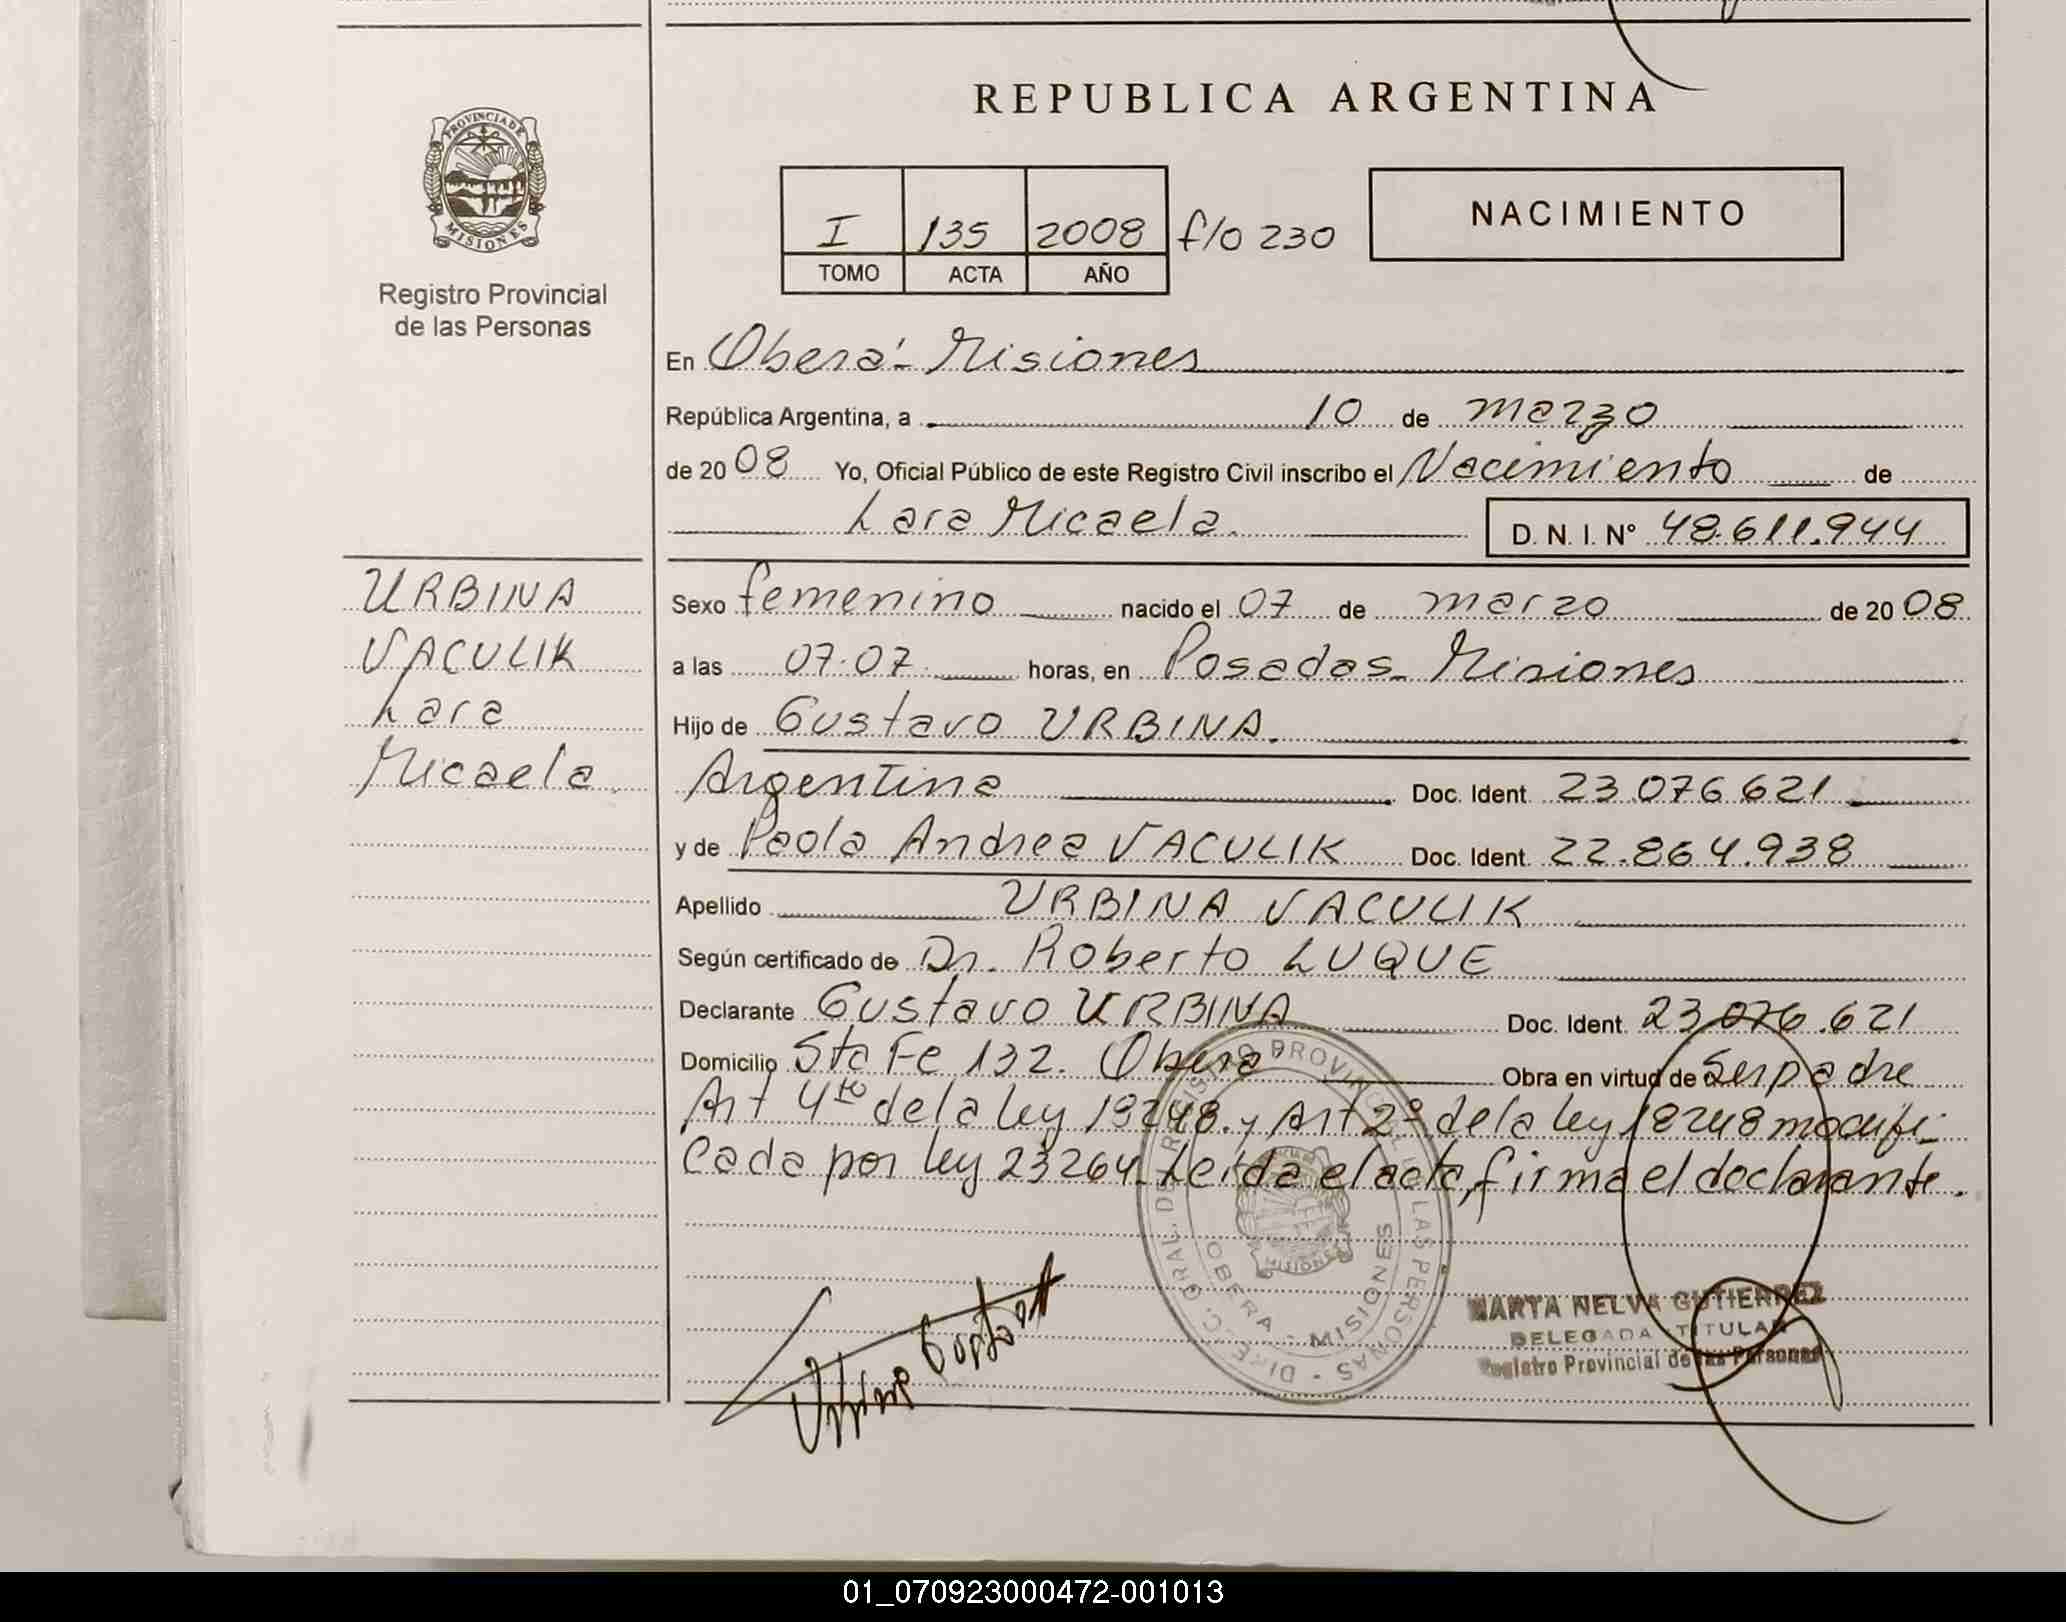 REPUBLICA ARGENTINA
PROVINCIA DE
MISIONES
Registro Provincial
de las Personas
I 135 2008 f/o 230
TOMO ACTA AÑO
NACIMIENTO
En Oberá - Misiones
República Argentina, a 10 de marzo
de 2008 Yo, Oficial Público de este Registro Civil inscribo el Nacimiento de
Lara Micaela. D. N. I. Nº 48.611.944
URBINA
VACULIK
Lara
Micaela.
Sexo femenino nacido el 07 de marzo de 2008
a las 07:07 horas, en Posadas - Misiones
Hijo de Gustavo URBINA.
Argentina Doc. Ident. 23.076.621
y de Paola Andrea VACULIK Doc. Ident. 22.864.938
Apellido URBINA VACULIK
Según certificado de Dr. Roberto LUQUE
Declarante Gustavo URBINA Doc. Ident. 23.076.621
Domicilio Sta Fe 132. Oberá Obra en virtud de Ser padre
Art 4to de la ley 18248. y Art 2º de la ley 18248 modifi-
cada por ley 23264. Leída el acta, firma el declarante.
DIREC. GRAL. DEL REGISTRO PROVINCIAL DE LAS PERSONAS
OBERA - MISIONES
MISIONES
Urbina Gustavo
MARTA NELVA GUTIERREZ
DELEGADA TITULAR
Registro Provincial de las Personas
01_070923000472-001013